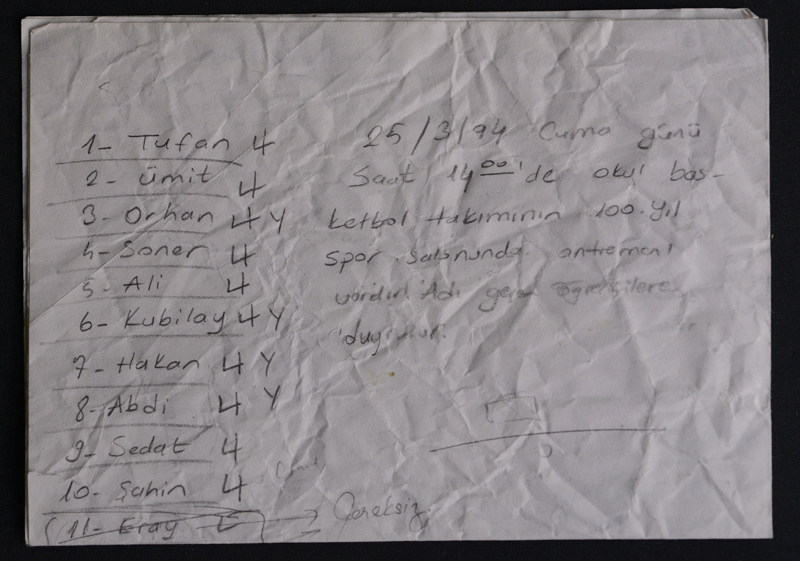 1- Tufan 4
2- Ümit 4
3- Orhan 4 Y
4- Soner 4
5- Ali 4
6- Kubilay 4 Y
7- Hakan 4 Y
8- Abdi 4 Y
9- Sedat 4
10- Şahin 4
11- Eray
Gereksiz
25/3/94 Cuma günü
Saat 14 00' de okul bas-
ketbol takımının 100. yıl
spor salonunda antremanı
vardır. Adı geçen öğrencilere
duyurulur.